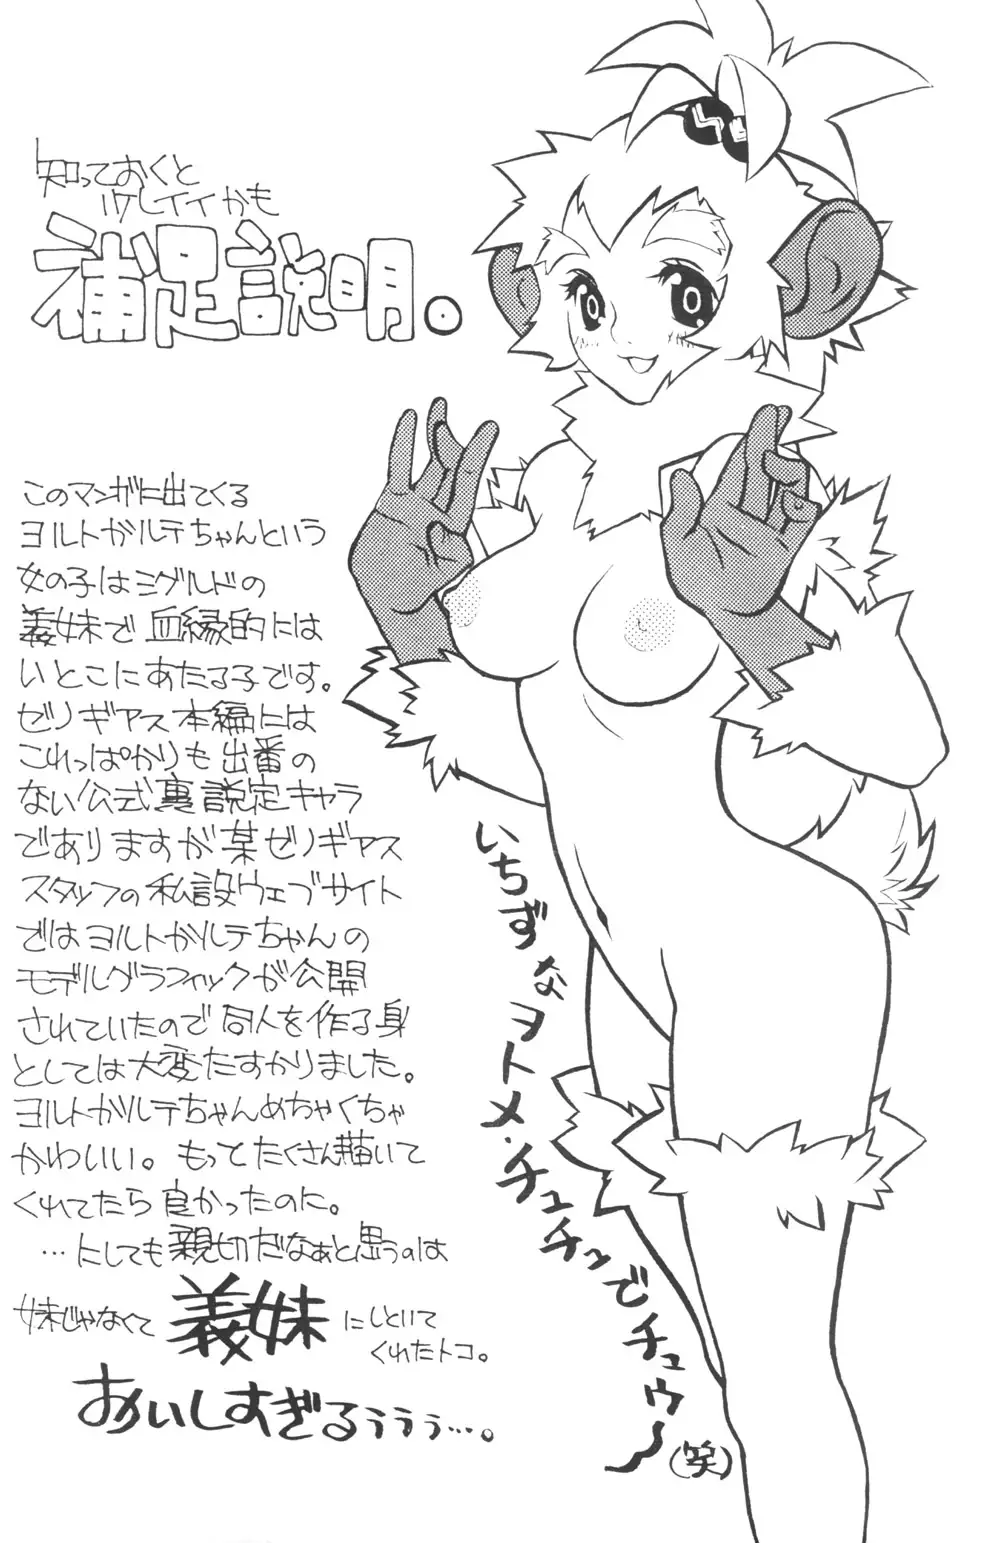 知っておくと
ケレイイかも
補足説明。
このマンガに出てくる
ヨルトガルテちゃんという
女の子はミグルドの
義妹で血縁的には
いとこにあたる子です。
ゼノギアス本編には
これっぱかりも出番の
ない公式裏設定キャラ
でありますが某ゼノギアス
スタッフの私設ウェブサイト
ではヨルトガルテちゃんの
モデルグラフィックが公開
されていたので同人を作る身
としては大変たすかりました。
ヨルトガルテちゃんめちゃくちゃ
かわいい。もっとたくさん描いて
くれてたら良かったのに。
…にしても親切だなぁと思うのは
妹じゃなくて義妹にしといて
くれたトコ。
おいしすぎるぅぅぅ…。
いちずなヲトメ・チュチュでチュウ〜(笑)